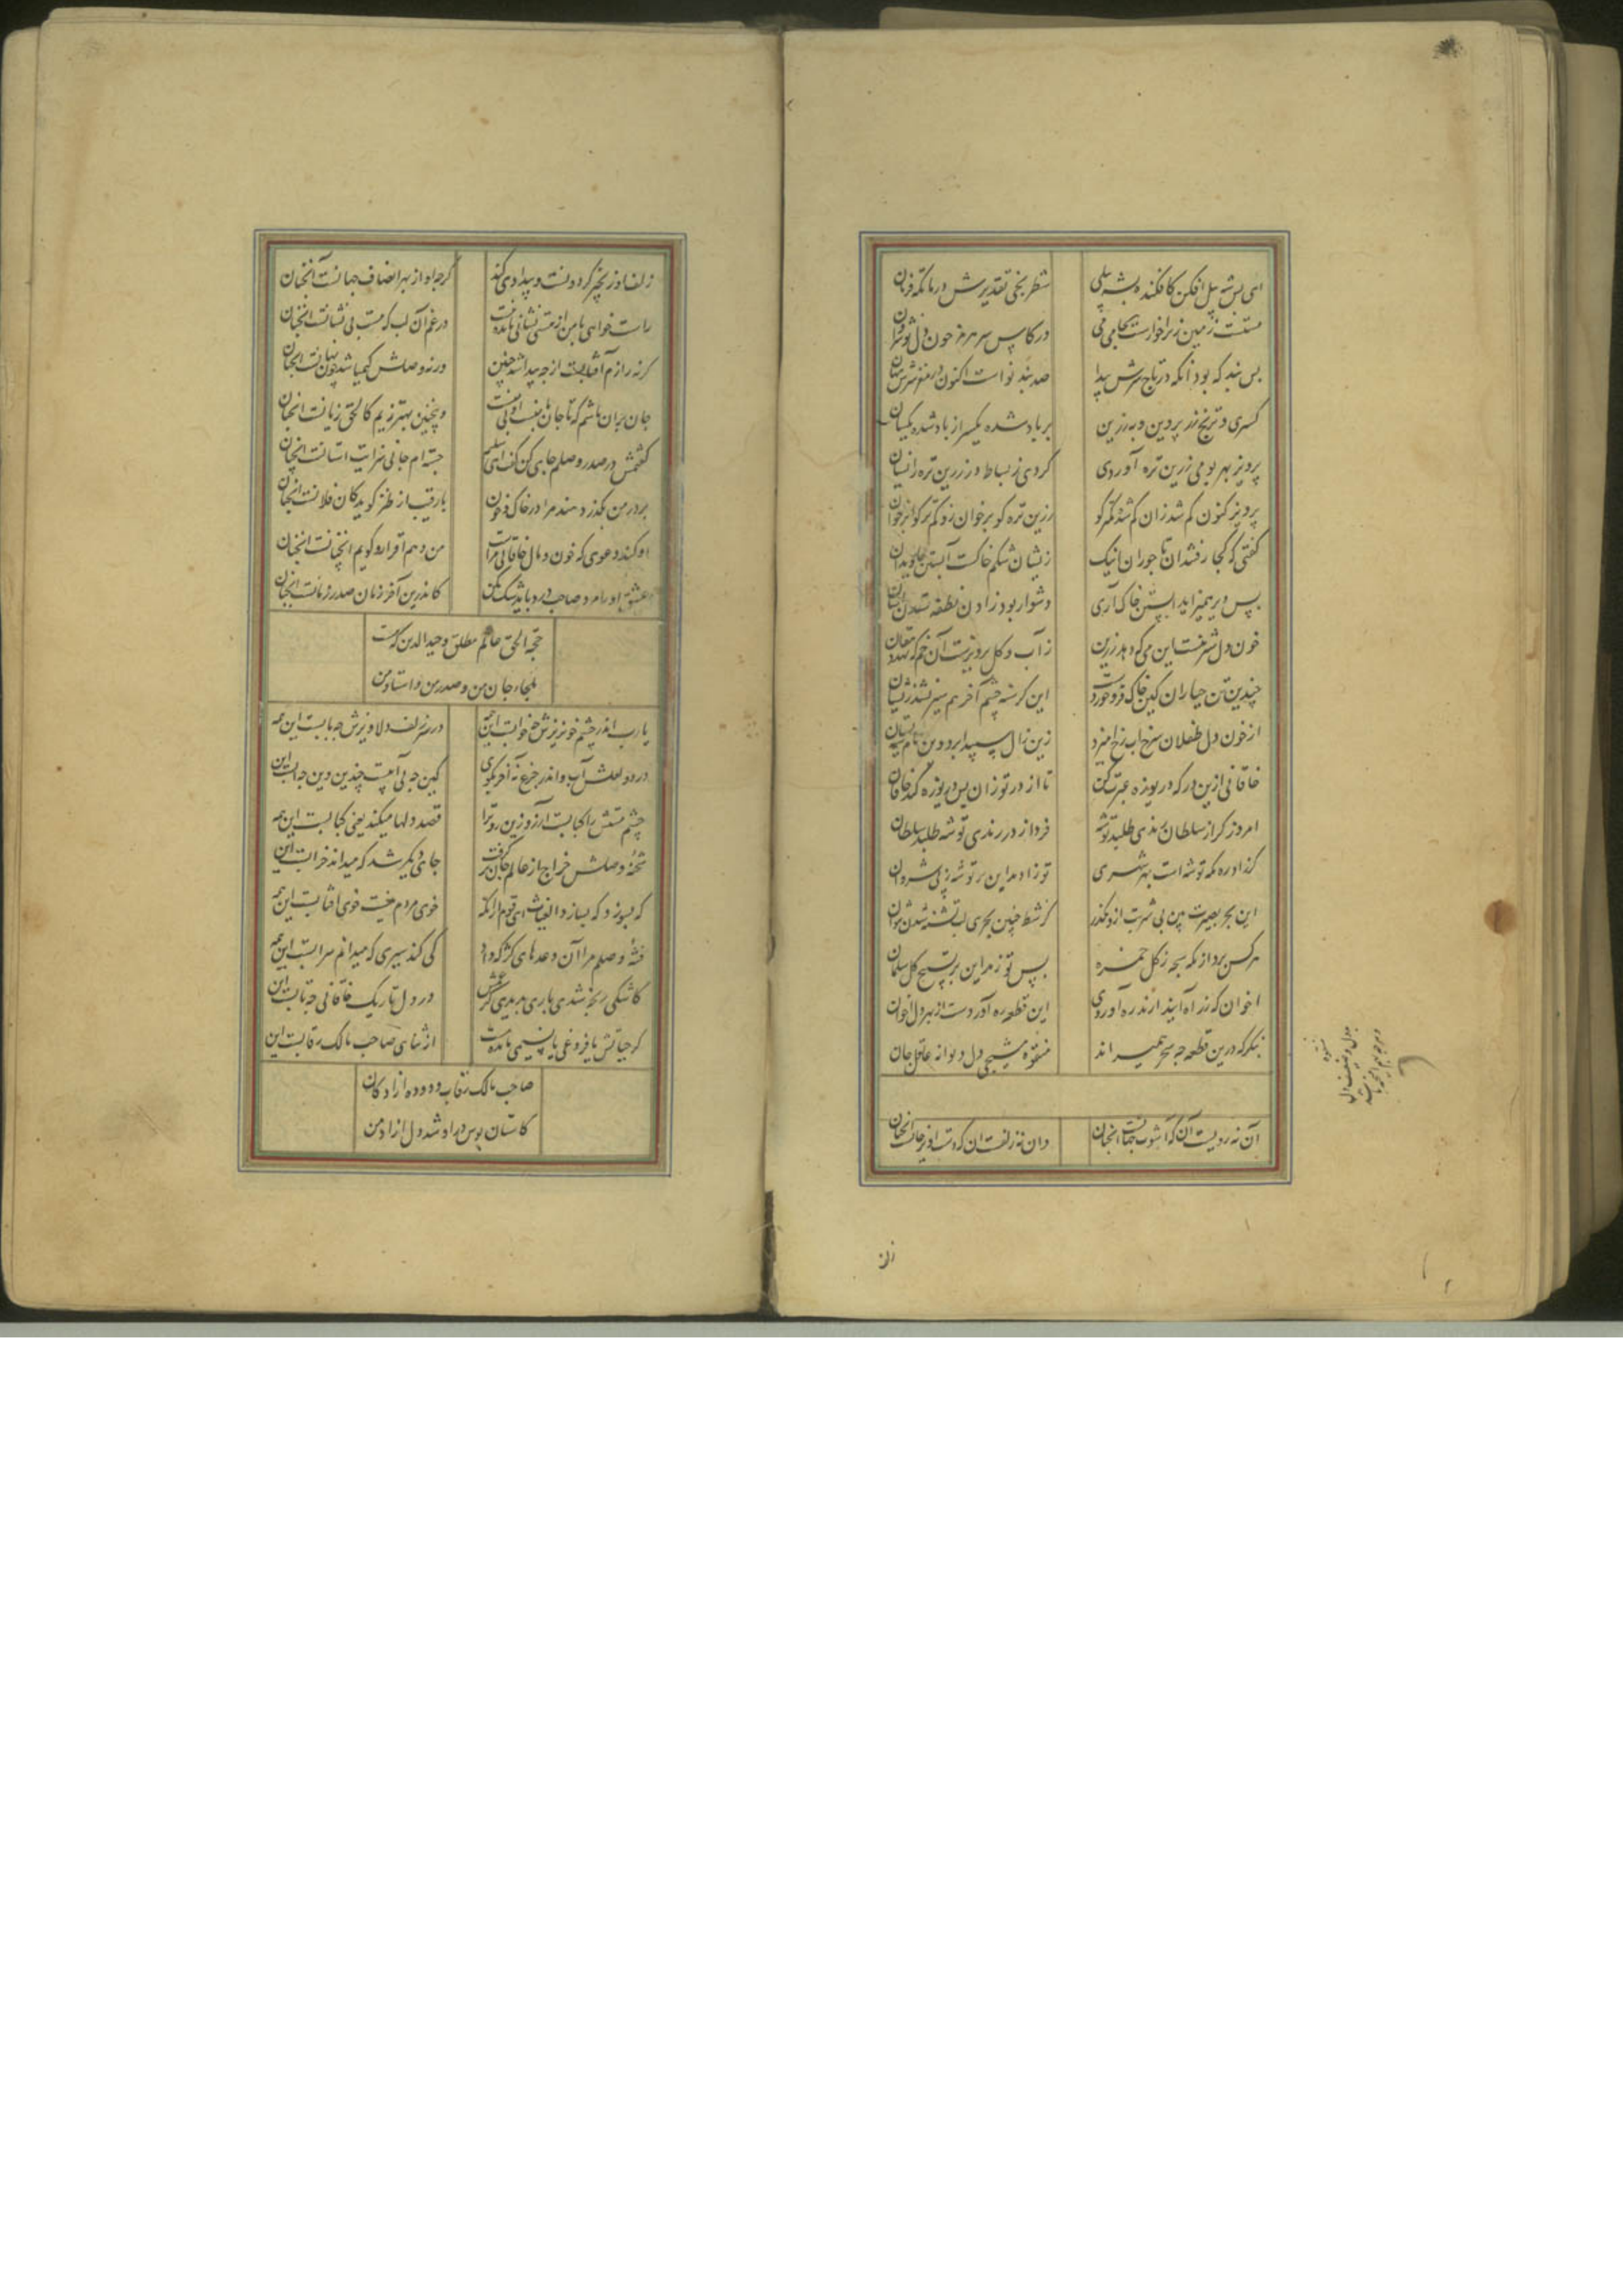 ای بس شه پیل افکن کافکنده بشه پیلی
شطرنجی تقدیرش در ماتگه فرمان
مستست زمین زیرا خوردست بجای می
در کاس سر هرمز خون دل نوشروان
بس پند که بود آنکه در تاج سرش پیدا
صد پند نو است اکنون در مغز سرش پنهان
کسری و ترنج زر پرویز و به زرین
بر باد شده یکسر از باد شده یکسان
پرویز بهر بومی زرین تره آوردی
کردی ز بساط زر زرین تره را بستان
پرویز کنون کم شد زان کم شده کمتر کو
زرین تره کو بر خوان رو کم ترکوا بر خوان
کفتی که کجا رفتند آن تاجوران اینک
زیشان شکم خاکست آبستن جاویدان
بس دیر همی زاید آبستن خاک آری
دشوار بود زادن نطفه ستدن آسان
خون دل شیرینست این می که دهد رزبن
ز آب و کل پرویزست آن خم که نهد دهقان
چندین تن جباران کین خاک فرو خوردست
این کرسنه چشم آخر هم سیر نشد زیشان
از خون دل طفلان سرخاب رخ آمیزد
این زال سپید ابرو وین مام سیه پستان
خاقانی ازین درکه دریوزه عبرت کن
تا از در تو زان پس دریوزه کند خاقان
امروز کر از سلطان رندی طلبد توشه
فردا ز در رندی توشه طلبد سلطان
کر زاد ره مکه توشه است بهر شهری
تو زاد مداین بر توشه ز پی شروان
این بحر بصیرت بین بی شربت ازو مکذر
کز شط چنین بحری لب تشنه شدن نتوان
هر کس برد از مکه سبحه ز کل حمزه
پس تو ز مداین بر تسبیح کل سلمان
اخوان که ز راه آیند آرند ره آوردی
این قطعه ره آوردست از بهر دل اخوان
بنکر که درین قطعه چه سحر همی راند
معتوه مسیحی دل دیوانه عاقل جان
آن نه رویست آن که آشوب جهانست آنچنان
وان نه زلفست آن که دست آویز جانست آنچنان
زلف
زلف او زنجیر کردونست و بیداد می کند
کرچه او از بهر انصاف جهانست آنچنان
راست خواهی با من از هستی نشانی مانده نیست
در غم آن لب که هست بی نشانست آنچنان
کر نه رازم آفتابست از چه پیدا شد چنین
ور نه وصلش کیمیا شد چون نهانست آنچنان
کفتمش در صدر وصلم جای کن کفت ای سلیم
جسته ام جایی سزایت آستانست آنچنان
بر در من بکذرد بیند مرا در خاک و خون
با رقیب از طنز کوید کان فلانست آنچنان
او کند دعوی که خون و مال خاقانی مراست
من دهم اقرار و کویم آنچنانست آنچنان
عشق او را مرد صاحب درد باید شک مکن
کاندرین آخر زمان صدر زمانست آنچنان
حجة الحق عالم مطلق وحید الدین که هست
ملجاء جان من و صدر من و استاد من
یا رب اندر چشم خونریزش چه خوابست این همه
در سر زلف دلاویزش چه تابست این همه
در دو لعلش آب و اندر جزع نه آخر بکوی
کین چه بی آبیست چندین وین چه آبست این همه
چشم مستش را کبابست آرزو زین رو مرا
قصد دلها میکند یعنی کبابست این همه
شحنه وصلش خراج از عالم جان برکرفت
جای دیکر شد که میداند خرابست این همه
که بسوزد که بسازد الغیاث ای قوم از آنکه
خوی مردم نیست خوی آفتابست این همه
تشنه وصلم مرا آن وعدهای کژ که داد
کی کند سیری که میدانم سرابست این همه
در دل تاریک خاقانی چه تابست این همه
کر حیاتش با فروغی یا نسیمی مانده است
از ثنای صاحب مالک رقابست این همه
صاحب مالک رقاب دوده آزادکان
کاستان بوس در او شد دل آزاد من